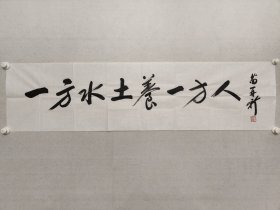 一方水土養一方人